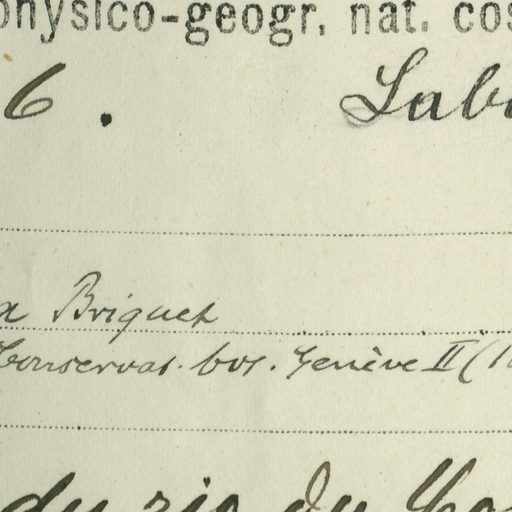 physico-geogr. nat. cos
6. Labi
a Briquet
Conservat. bot. Genève II (1
du rio du